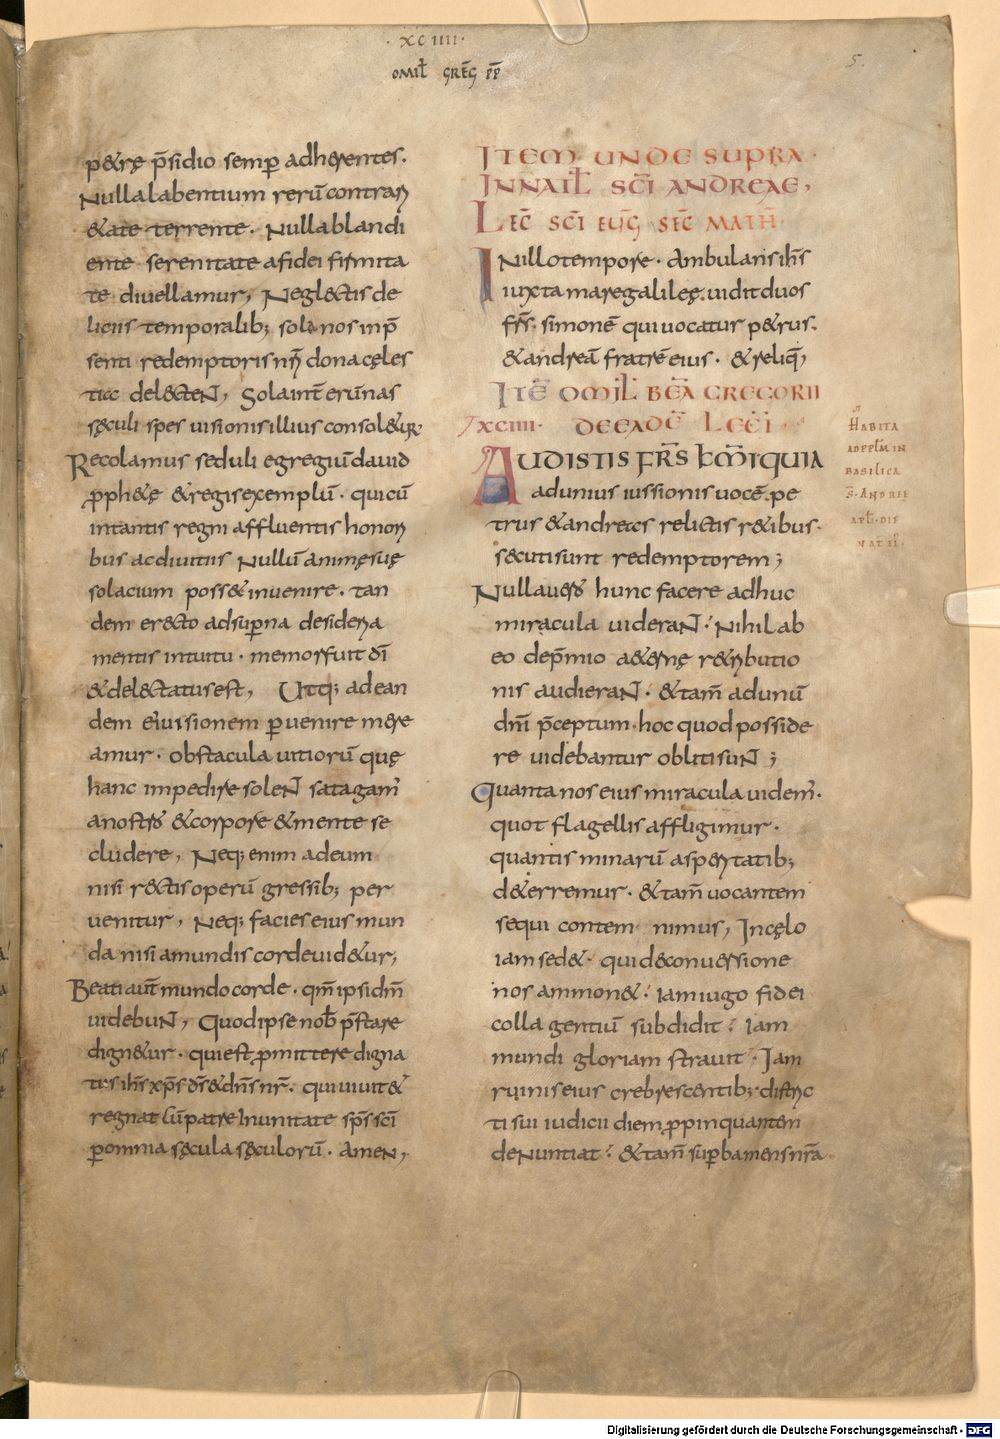 · XCIIII ·
OMIL̄ GREḠ P̄P̄
5.
p&rę p̄sidio semp̲ adherentes.
Nulla labentium rerū contrari
&ate terrente. Nulla blandi
ente serenitate a fidei firmita
te diuellamur, Neglectis de
liciis temporalib; sola nos inp̄
senti redemptoris nr̄i dona cęles
tia delecteN̄, Sola int̄ erūnas
sęculi spes uisionis illius consol&ur.
Recolamus seduli egregiū dauid
p̲ph&ę &regis exemplū. qui cū
intantis regni affluentis honori
bus ac diuitiis Nullū animę suę
solacium poss& inuenire. tan
dem erecto ad sup̲na desideria
mentis intuitu. memor fuit dī
&delectatus est, Utq; ad ean
dem ei' uisionem p̲uenire mere
amur. obstacula uitiorū quę
hanc impedire soleN̄ satagam̄
a nostro &corpore &mente se
cludere, Neq; enim ad eum
nisi rectis operū gressib; per
uenitur, Neq; facies eius mun
da nisi a mundis corde uid&ur,
Beati aut̄ mundo corde. qm̄ ipsi dm̄
uidebuN̄, Quod ipse nob̄ p̄stare
dign&ur. qui est p̲mittere digna
tus ih̄s xp̄s dn̄s &dn̄s nr̄. qui uiuit &
regnat cū patre In unitate sp̄s sc̄i
p̲ omnia sęcula sęculorū. AmeN,
ITEM UNDE SUPRA.
IN NAT̄L SC̄I ANDREAE,
LEC̄ SC̄I EUḠ SEC̄ MATH̄
IN illo tempore. Ambulans ih̄s
iuxta mare galileę. uidit duos
fr̄s. simonē qui uocatur p&rus.
&andreā fratrē eius. &reliq̄,
ITĒ OMIL̄ BEĀ GREGORII
XCIIII. DE EADĒ LEC̄I
AUDISTIS FR̄S KM̄I QUIA
ad unius iussionis uocē. pe
trus &andreas relictis r&ibus.
secuti sunt redemptorem;
Nulla uero hunc facere adhuc
miracula uideraN̄. Nihil ab
eo de p̄mio a&ernę r&ributio
nis audieraN̄. &tam̄ ad unū
dn̄i p̄ceptum. hoc quod posside
re uidebantur obliti suN̄;
Quanta nos eius miracula uidem̄.
quot flagellis affligimur.
quantis minarū asperitatib;
d&erremur. &tam̄ uocantem
sequi contemnimus, In cęlo
iam sed&. qui de conuersione
nos ammon&. Iam iugo fidei
colla gentiū subdidit. Iam
mundi gloriam strauit. Iam
ruinis eius crebrescentib; distric
ti sui iudicii diem p̲pinquantem
deNuntiat. &tam̄ sup̲ba mens nr̄a
HABITA
AD PPL̄M IN
BASILICA
S̄. ANDREE
APL̄I. DIE
NATAL̄.
Digitalisierung gefördert durch die Deutsche Forschungsgemeinschaft · DFG